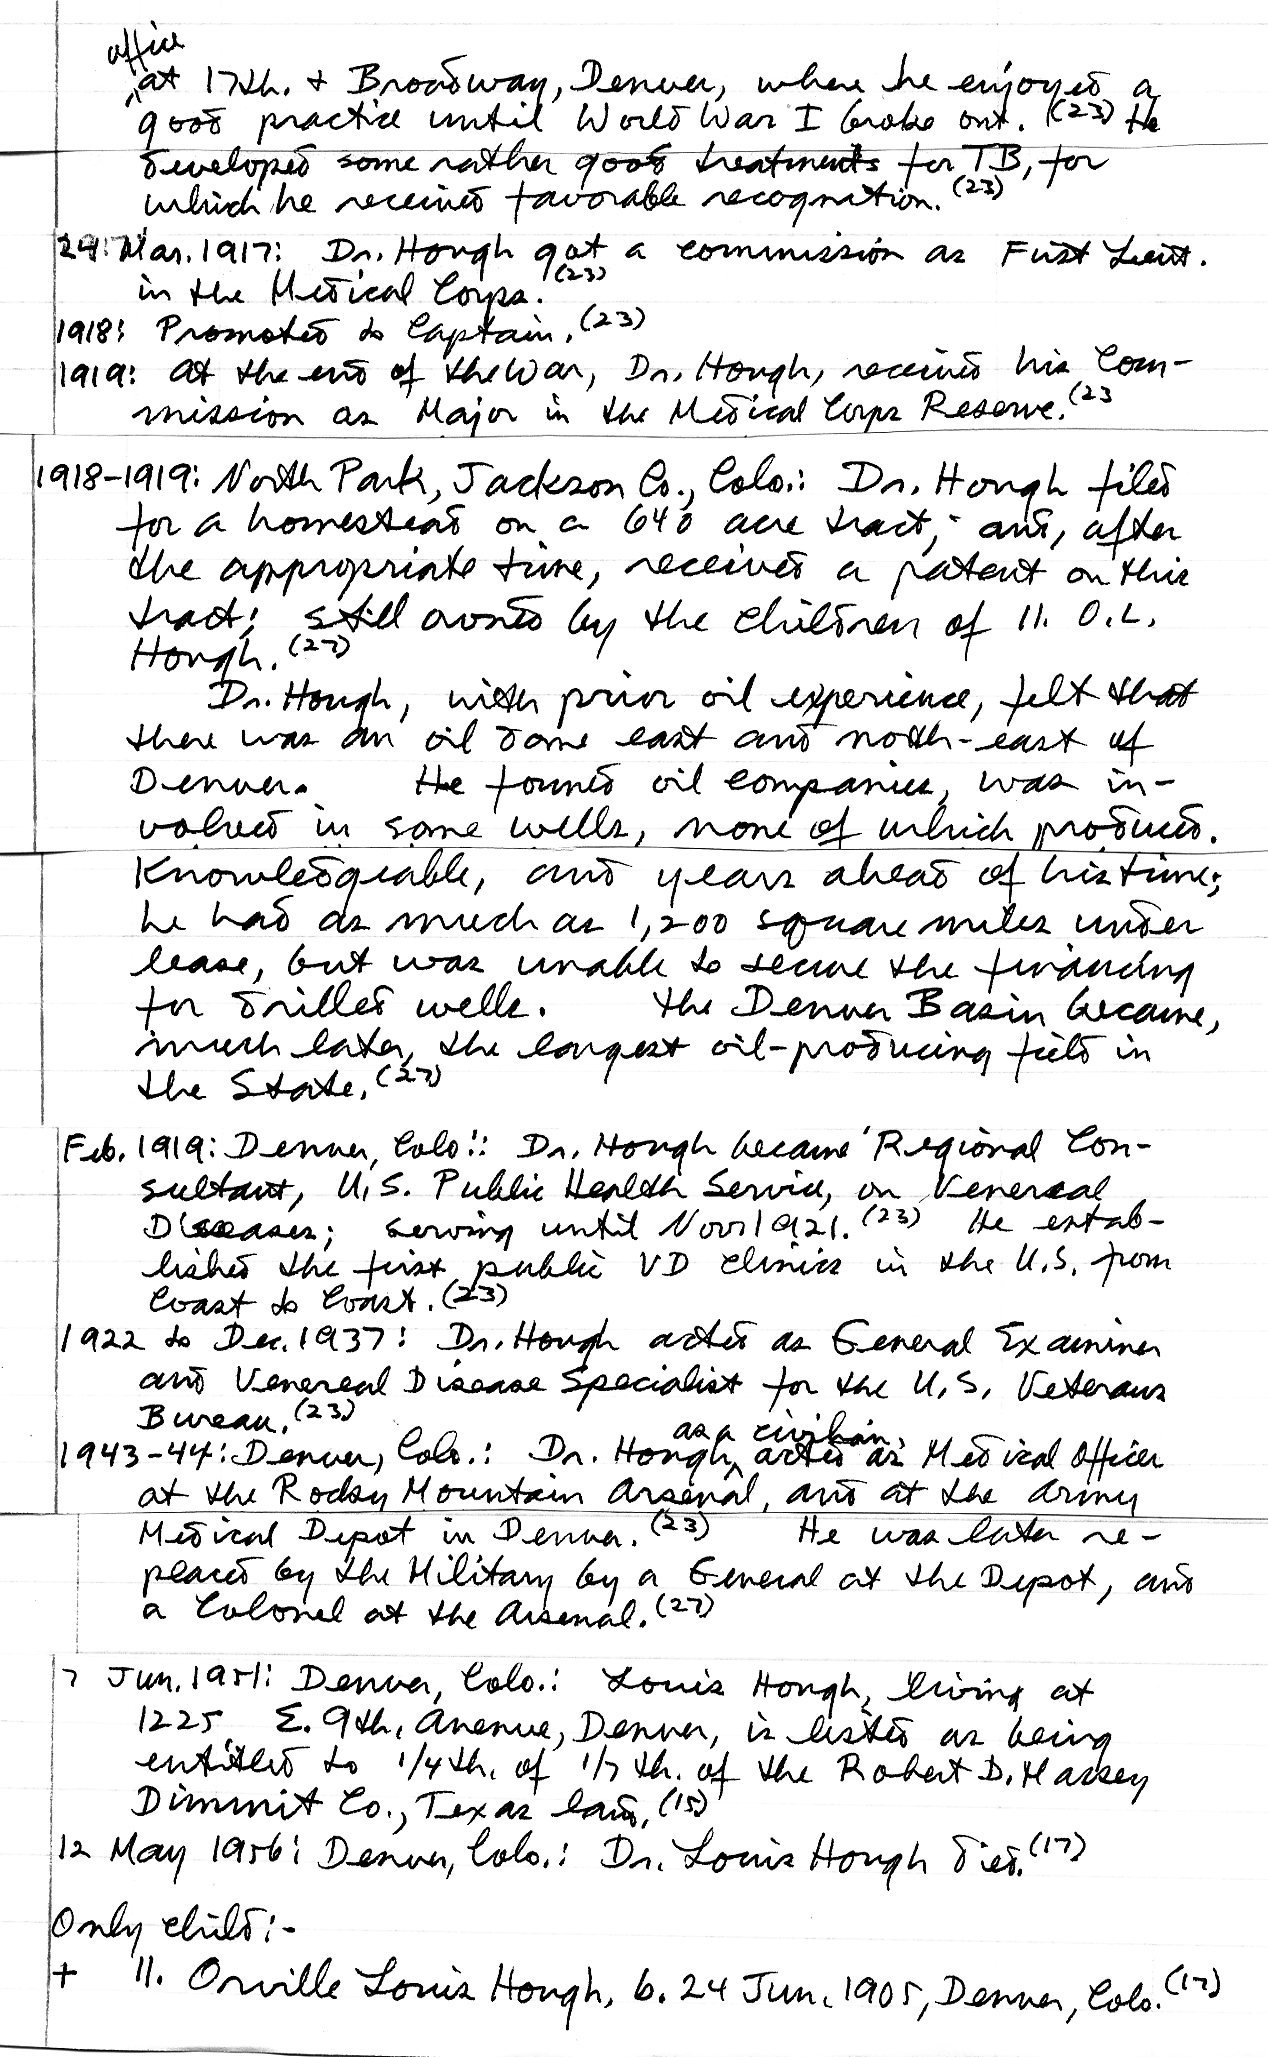 office
^at 17th. + Broadway, Denver, where he enjoyed a
good practice until World War I broke out. (23) He
developed some rather good treatments for TB, for
which he received favorable recognition. (23)
29: Mar. 1917: Dr. Hough got a commission as First Lieut.
in the Medical Corps. (23)
1918: Promoted to Captain. (23)
1919: At the end of the War, Dr. Hough, received his Com-
mission as Major in the Medical Corps Reserve. (23
1918-1919: North Park, Jackson Co., Colo.: Dr. Hough filed
for a homestead on a 640 acre tract; and, after
the appropriate time, received a patent on this
tract; still owned by the children of 11. O.L.
Hough. (27)
Dr. Hough, with prior oil experience, felt that
there was an oil dome east and north-east of
Denver. He formed oil companies, was in-
volved in some wells, none of which produced.
Knowledgeable, and years ahead of his time;
he had as much as 1,200 square miles under
lease, but was unable to secure the financing
for drilled wells. The Denver Basin became,
much later, the longest oil-producing field in
the State. (27)
Feb. 1919: Denver, Colo.: Dr. Hough became Regional Con-
sultant, U.S. Public Health Service, on Venereal
Diseases; serving until Nov. 1921. (23) He estab-
lished the first public VD clinics in the U.S. from
Coast to Coast. (23)
1922 to Dec. 1937: Dr. Hough acted as General Examiner
and Venereal Disease Specialist for the U.S. Veterans
Bureau. (23)
as a civilian,
1943-44: Denver, Colo.: Dr. Hough,^ acted as Medical Officer
at the Rocky Mountain Arsenal, and at the Army
Medical Depot in Denver. (23) He was later re-
placed by the Military by a General at the Depot, and
a Colonel at the Arsenal. (27)
7 Jun. 1951: Denver, Colo.: Louis Hough, living at
1225 E. 9th. Avenue, Denver, is listed as being
entitled to 1/4th. of 1/7th. of the Robert D. Massey
Dimmit Co., Texas land. (15)
12 May 1956: Denver, Colo.: Dr. Louis Hough died. (17)
Only child:-
+ 11. Orville Louis Hough, b. 24 Jun. 1905, Denver, Colo. (17)